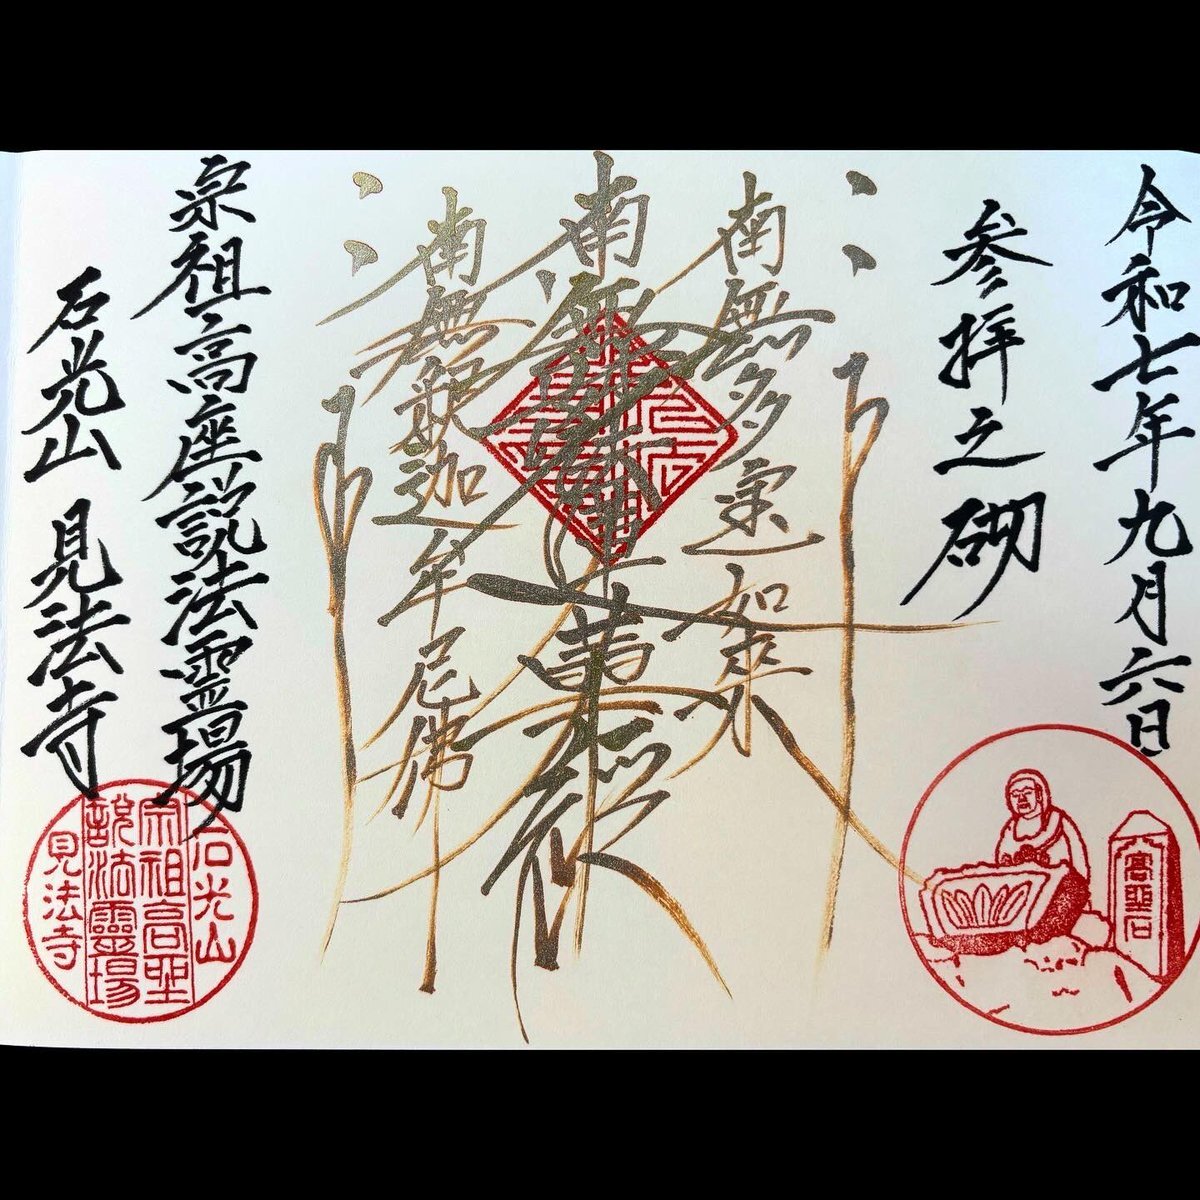 令和七年九月六日
参拝之砌
南無多宝如来
南無妙法蓮華経
南無釈迦牟尼佛
宗祖高座説法霊場
石光山 見法寺
高座石
石光山
宗祖高座
説法靈場
見法寺